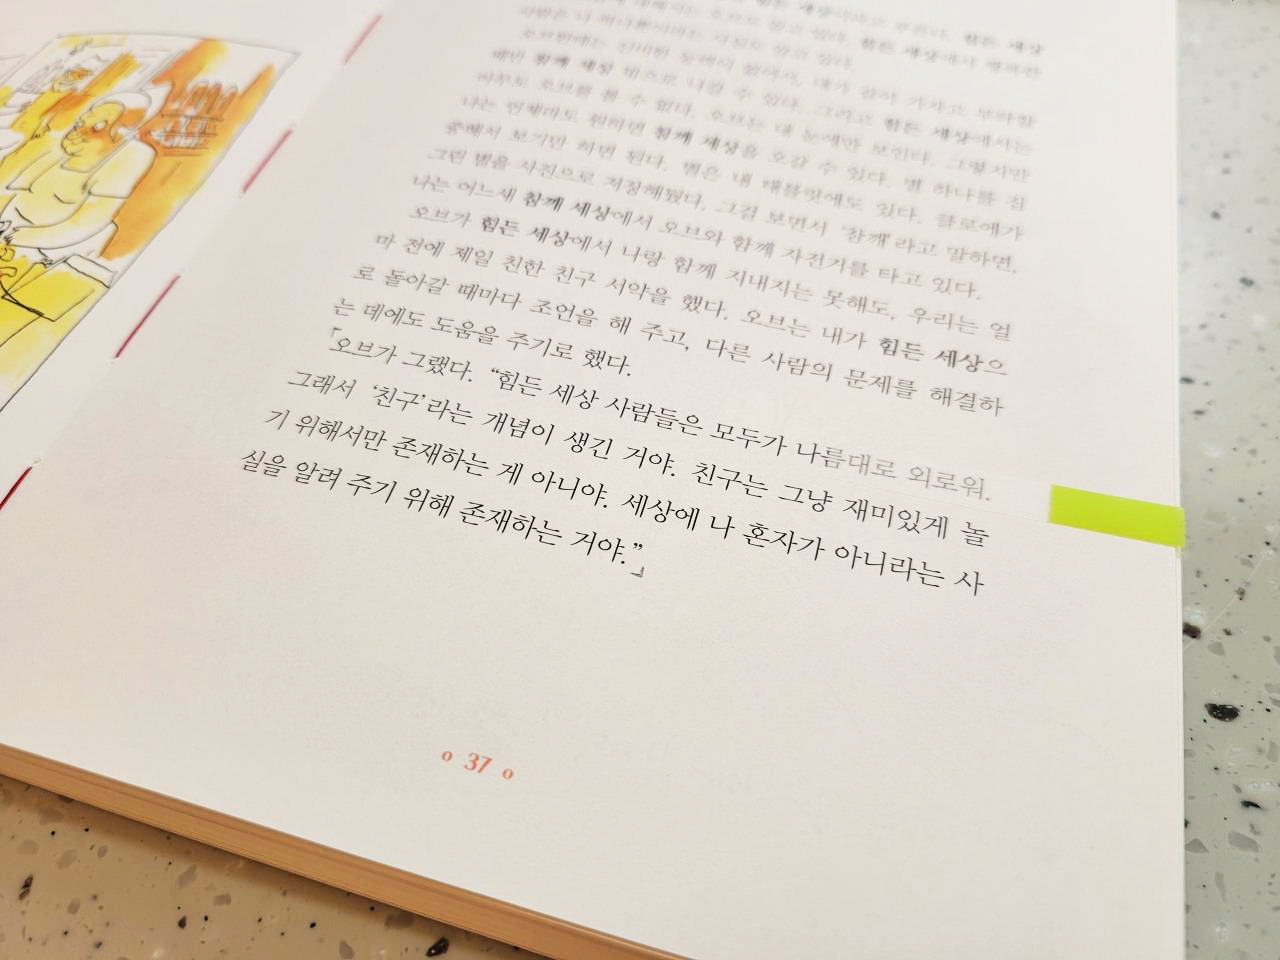 오브한테는
매번 참깨 세상 밖으로 나갈 수 있다. 그리고 힘든 세상에서는
아무도 오브를 볼 수 없다. 오브는 내 눈에만 보인다. 그렇지만
나는 언제라도 원하면 참깨 세상을 오갈 수 있다. 별 하나를 집
중해서 보기만 하면 된다. 별은 내 태블릿에도 있다. 클로에가
그린 별을 사진으로 저장해뒀다. 그걸 보면서 '참깨'라고 말하면,
나는 어느새 참깨 세상에서 오브와 함께 자전거를 타고 있다.
오브가 힘든 세상에서 나랑 함께 지내지는 못해도, 우리는 얼
마 전에 제일 친한 친구 서약을 했다. 오브는 내가 힘든 세상으
로 돌아갈 때마다 조언을 해 주고, 다른 사람의 문제를 해결하
는 데에도 도움을 주기로 했다.
「오브가 그랬다. “힘든 세상 사람들은 모두가 나름대로 외로워.
그래서 ‘친구’라는 개념이 생긴 거야. 친구는 그냥 재미있게 놀
기 위해서만 존재하는 게 아니야. 세상에 나 혼자가 아니라는 사
실을 알려 주기 위해 존재하는 거야.”」
37